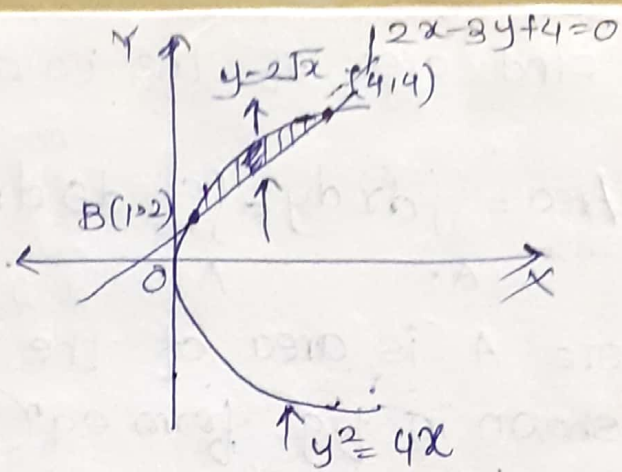 Y
2x-3y+4=0
y=2√x
(4,4)
B(1,2)
O
X
y²=4x